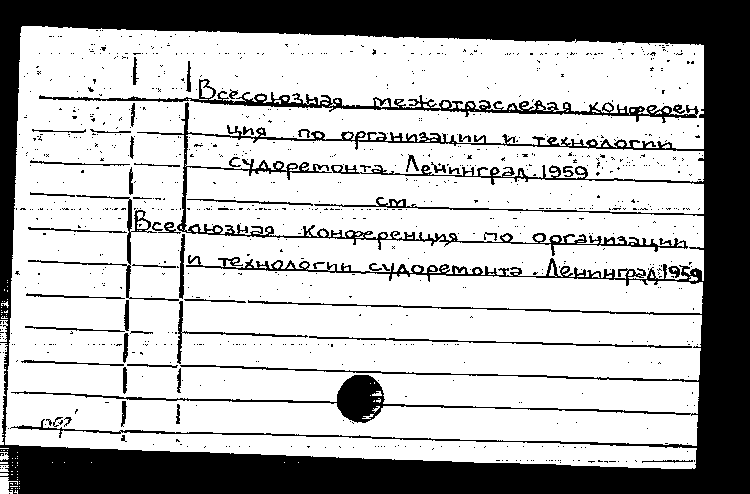 Всесоюзная межотраслевая конферен-
ция по организации и технологии
судоремонта. Ленинград. 1959.
см.
Всесоюзная конференция по организации
и технологии судоремонта. Ленинград. 1959